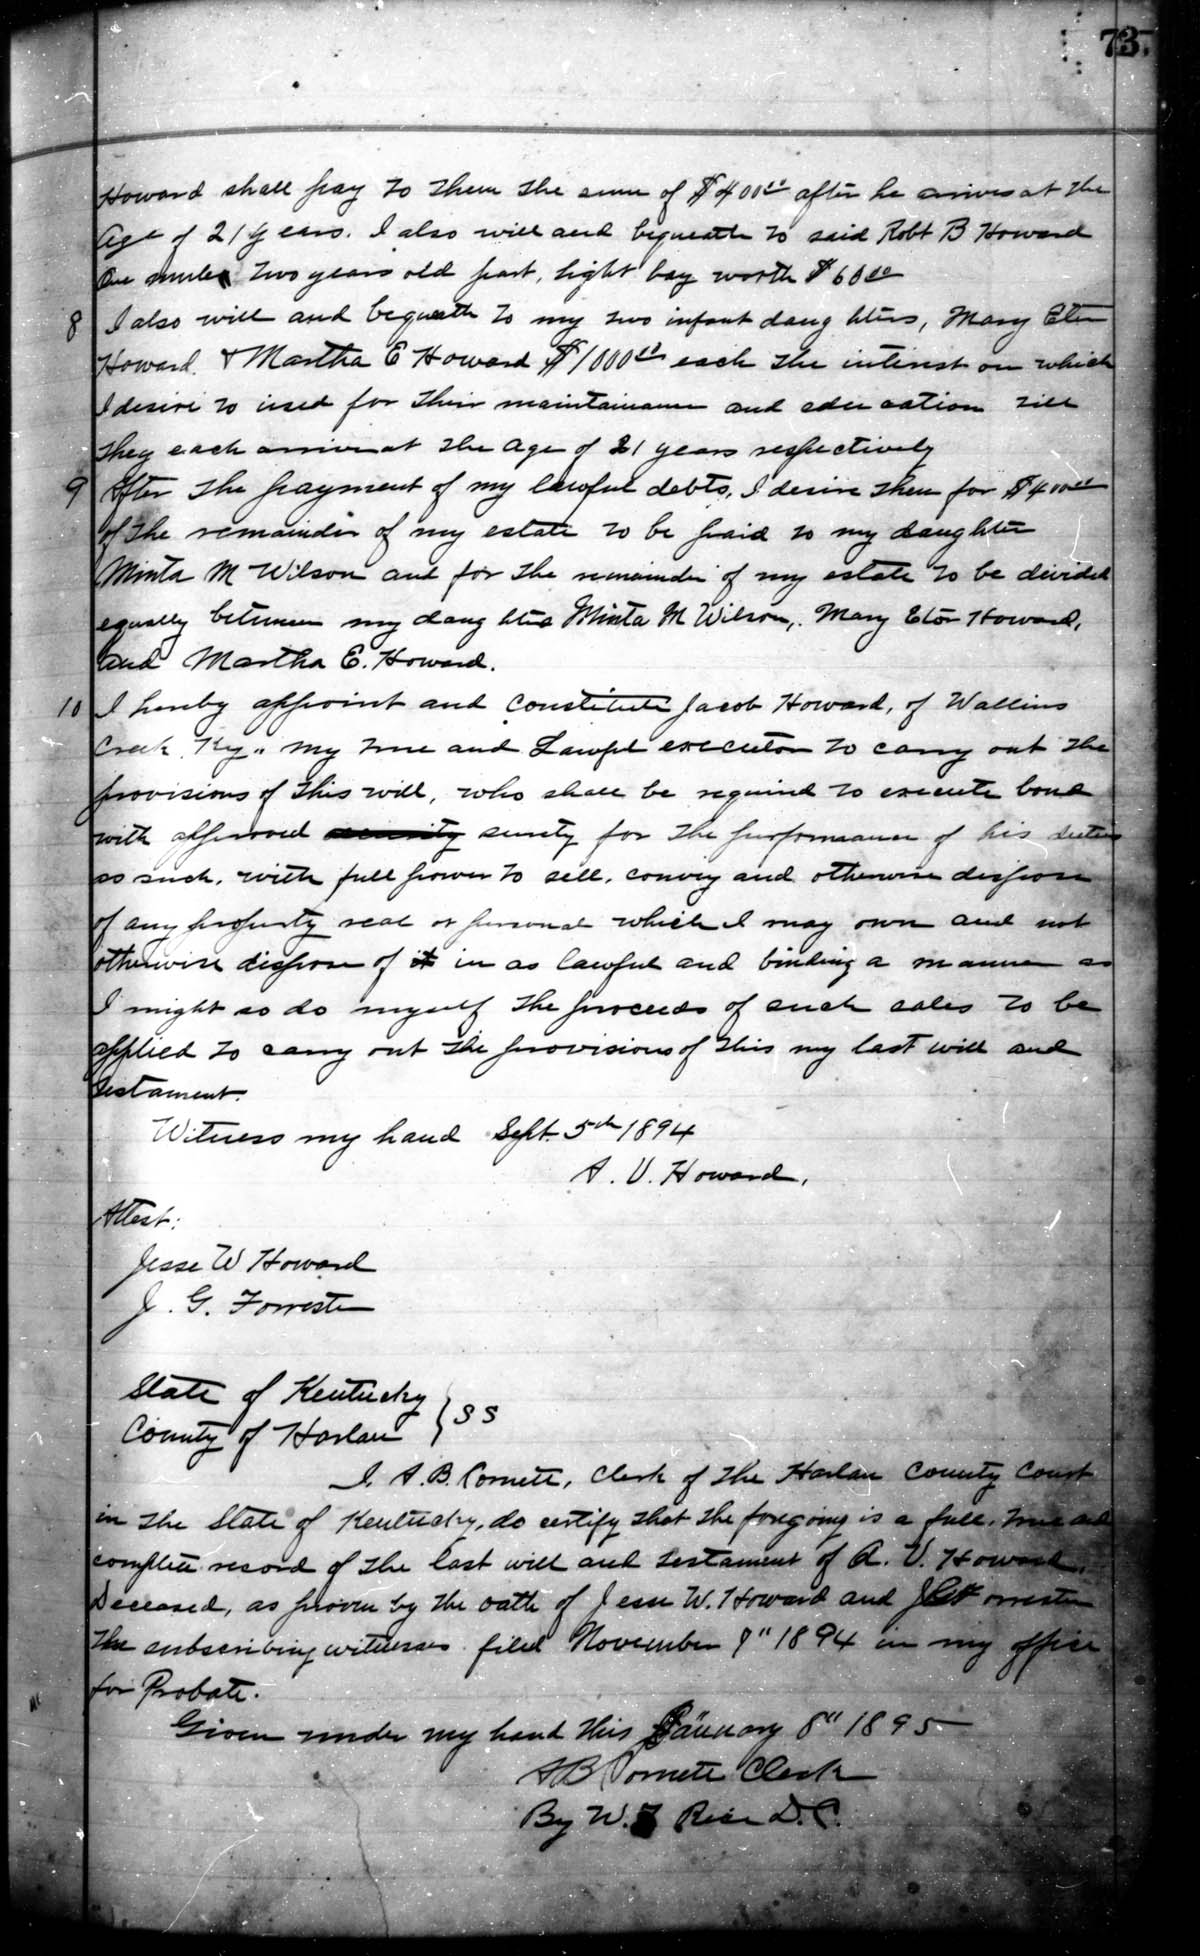 73.
Howard shall pay to them the sum of $400.00 after he arrives at the
age of 21 years. I also will and bequeath to said Robt B Howard
One mule two years old past, light bay worth $60.00
8 I also will and bequeath to my two infant daughters, Mary Etor
Howard & Martha E Howard $1000.00 each the interest on which
I desire to used for their maintainance and education till
they each arrive at the age of 21 years respectively
9 After the payment of my lawful debts, I desire them for $400.00
of the remainder of my estate to be paid to my daughter
Minta M Wilson and for the remainder of my estate to be divided
equally between my daughters Minta M Wilson, Mary Etor Howard,
and Martha E. Howard.
10 I hereby appoint and constitute Jacob Howard, of Wallins
Creek Ky., my true and Lawful executor to carry out the
provisions of this will, who shall be required to execute bond
with approved security surety for the performance of his duties
as such, with full power to sell, convey and otherwise dispose
of any property real or personal which I may own and not
otherwise dispose of it in as lawful and binding a manner as
I might so do myself the proceeds of such sales to be
applied to carry out the provisions of this my last will and
testament.
Witness my hand Sept. 5th 1894
A. V. Howard.
Attest:
Jesse W Howard
J. G. Forrester
State of Kentucky
County of Harlan } SS
I, A. B. Cornett, Clerk of the Harlan County Court
in the State of Kentucky, do certify that the foregoing is a full, true and
complete record of the last will and testament of A. V. Howard,
Deceased, as proven by the oath of Jesse W. Howard and J G Forrester
the subscribing witnesses filed November 1894 in my office
for Probate.
Given under my hand this January 8" 1895
A B Cornett Clerk
By W. Rice D.C.